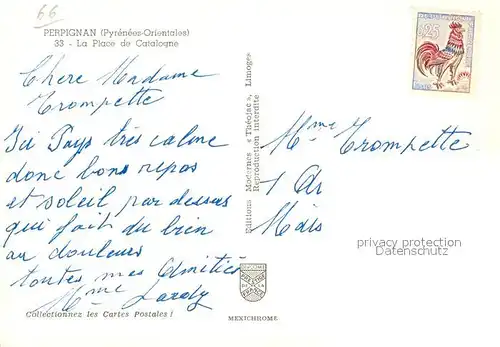 66
PERPIGNAN (Pyrénées-Orientales)
33 - La Place de Catalogne
Chere Madame
Trompette
Ici Pays tres calme
donc bons repos
et soleil par dessus
qui fait du bien
au douleurs
toutes mes Amitiés
Mme
Collectionnez les Cartes Postales !
Editions Modernes « Théojac » Limoges
Reproduction interdite
MEXICHROME
0,25
Mme Trompette
privacy protection
Datenschutz